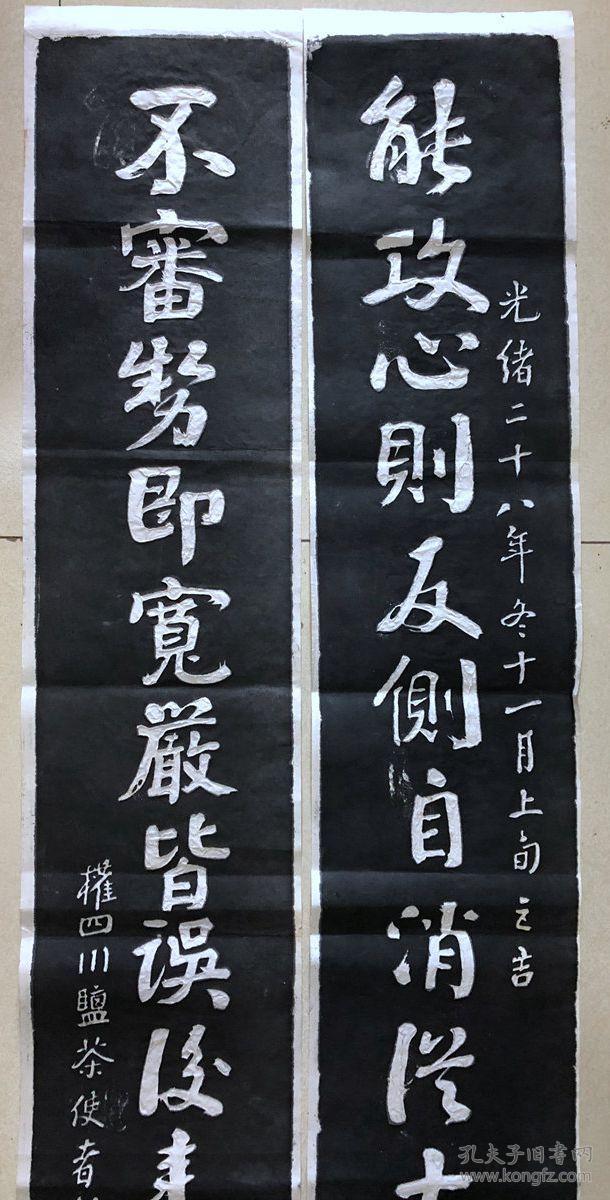 光緒二十八年冬十一月上旬之吉
能攻心則反側自消從古
不審勢即寬嚴皆誤後來
權四川鹽茶使者
孔夫子旧书网
www.kongfz.com